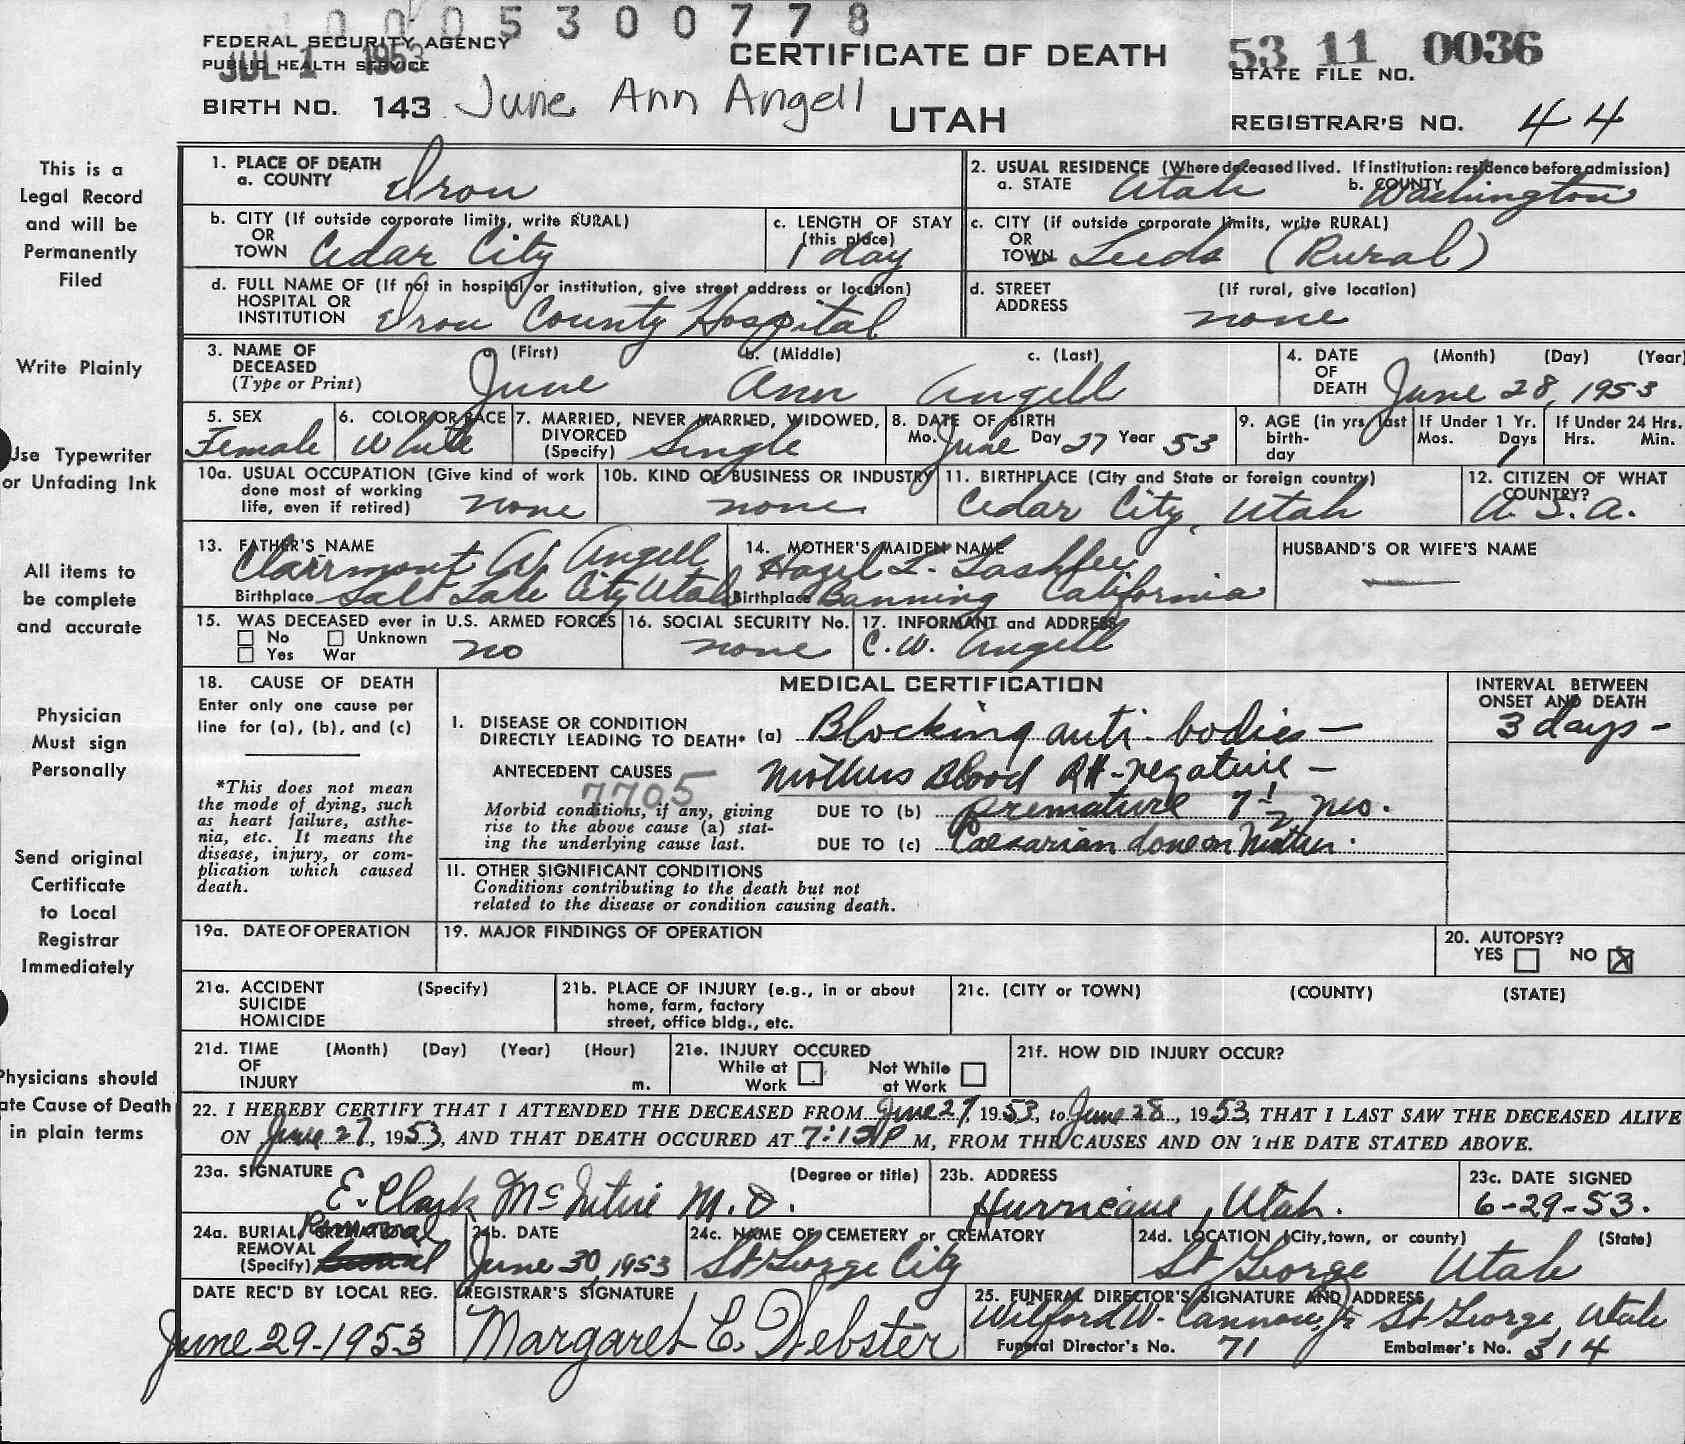 0005300778
FEDERAL SECURITY AGENCY
PUBLIC HEALTH SERVICE
JUL 1 1953
CERTIFICATE OF DEATH
53 11 0036
STATE FILE NO.
BIRTH NO. 143 June Ann Angell
UTAH
REGISTRAR'S NO. 44
This is a
Legal Record
and will be
Permanently
Filed
Write Plainly
Use Typewriter
or Unfading Ink
All items to
be complete
and accurate
Physician
Must sign
Personally
Send original
Certificate
to Local
Registrar
Immediately
Physicians should
ate Cause of Death
in plain terms
1. PLACE OF DEATH
a. COUNTY Iron
2. USUAL RESIDENCE (Where deceased lived. If institution: residence before admission)
a. STATE Utah b. COUNTY Washington
b. CITY (If outside corporate limits, write RURAL)
OR
TOWN Cedar City
c. LENGTH OF STAY
(this place)
1 day
c. CITY (if outside corporate limits, write RURAL)
OR
TOWN Leeds (Rural)
d. FULL NAME OF (If not in hospital or institution, give street address or location)
HOSPITAL OR
INSTITUTION Iron County Hospital
d. STREET (If rural, give location)
ADDRESS none
3. NAME OF a. (First) b. (Middle) c. (Last)
DECEASED
(Type or Print) June Ann Angell
4. DATE (Month) (Day) (Year)
OF
DEATH June 28, 1953
5. SEX
Female
6. COLOR OR RACE
White
7. MARRIED, NEVER MARRIED, WIDOWED,
DIVORCED
(Specify) Single
8. DATE OF BIRTH
Mo. June Day 27 Year 53
9. AGE (in yrs. last
birth-
day
If Under 1 Yr.
Mos. Days
1
If Under 24 Hrs.
Hrs. Min.
10a. USUAL OCCUPATION (Give kind of work
done most of working
life, even if retired) none
10b. KIND OF BUSINESS OR INDUSTRY
none
11. BIRTHPLACE (City and State or foreign country)
Cedar City, Utah
12. CITIZEN OF WHAT
COUNTRY?
U.S.A.
13. FATHER'S NAME
Clairmont W. Angell
Birthplace Salt Lake City Utah
14. MOTHER'S MAIDEN NAME
Hazel L. Lashlee
Birthplace Banning California
HUSBAND'S OR WIFE'S NAME
15. WAS DECEASED ever in U.S. ARMED FORCES
No Unknown
Yes War no
16. SOCIAL SECURITY No.
none
17. INFORMANT and ADDRESS
C.W. Angell
18. CAUSE OF DEATH
Enter only one cause per
line for (a), (b), and (c)
*This does not mean
the mode of dying, such
as heart failure, asthe-
nia, etc. It means the
disease, injury, or com-
plication which caused
death.
MEDICAL CERTIFICATION
INTERVAL BETWEEN
ONSET AND DEATH
3 days -
I. DISEASE OR CONDITION
DIRECTLY LEADING TO DEATH* (a) Blocking anti-bodies -
ANTECEDENT CAUSES Mothers Blood RH-negative -
7705
Morbid conditions, if any, giving
rise to the above cause (a) stat-
ing the underlying cause last.
DUE TO (b) premature 7 1/2 mo.
DUE TO (c) Caesarian done on Mother.
II. OTHER SIGNIFICANT CONDITIONS
Conditions contributing to the death but not
related to the disease or condition causing death.
19a. DATE OF OPERATION
19. MAJOR FINDINGS OF OPERATION
20. AUTOPSY?
YES NO X
21a. ACCIDENT (Specify)
SUICIDE
HOMICIDE
21b. PLACE OF INJURY (e.g., in or about
home, farm, factory
street, office bldg., etc.
21c. (CITY or TOWN) (COUNTY) (STATE)
21d. TIME (Month) (Day) (Year) (Hour)
OF
INJURY m.
21e. INJURY OCCURED
While at Not While
Work at Work
21f. HOW DID INJURY OCCUR?
22. I HEREBY CERTIFY THAT I ATTENDED THE DECEASED FROM June 27, 1953, to June 28, 1953, THAT I LAST SAW THE DECEASED ALIVE
ON June 27, 1953, AND THAT DEATH OCCURED AT 7:15 P M, FROM THE CAUSES AND ON THE DATE STATED ABOVE.
23a. SIGNATURE (Degree or title)
E. Clark McIntire M.D.
23b. ADDRESS
Hurricane, Utah.
23c. DATE SIGNED
6-29-53.
24a. BURIAL, CREMATION, Removal
REMOVAL
(Specify)
24b. DATE
June 30, 1953
24c. NAME OF CEMETERY or CREMATORY
St George City
24d. LOCATION (City, town, or county) (State)
St George Utah
DATE REC'D BY LOCAL REG.
June 29-1953
REGISTRAR'S SIGNATURE
Margaret C. Webster
25. FUNERAL DIRECTOR'S SIGNATURE AND ADDRESS
Wilford W. Cannon, Jr. St George, Utah
Funeral Director's No. 71 Embalmer's No. 314